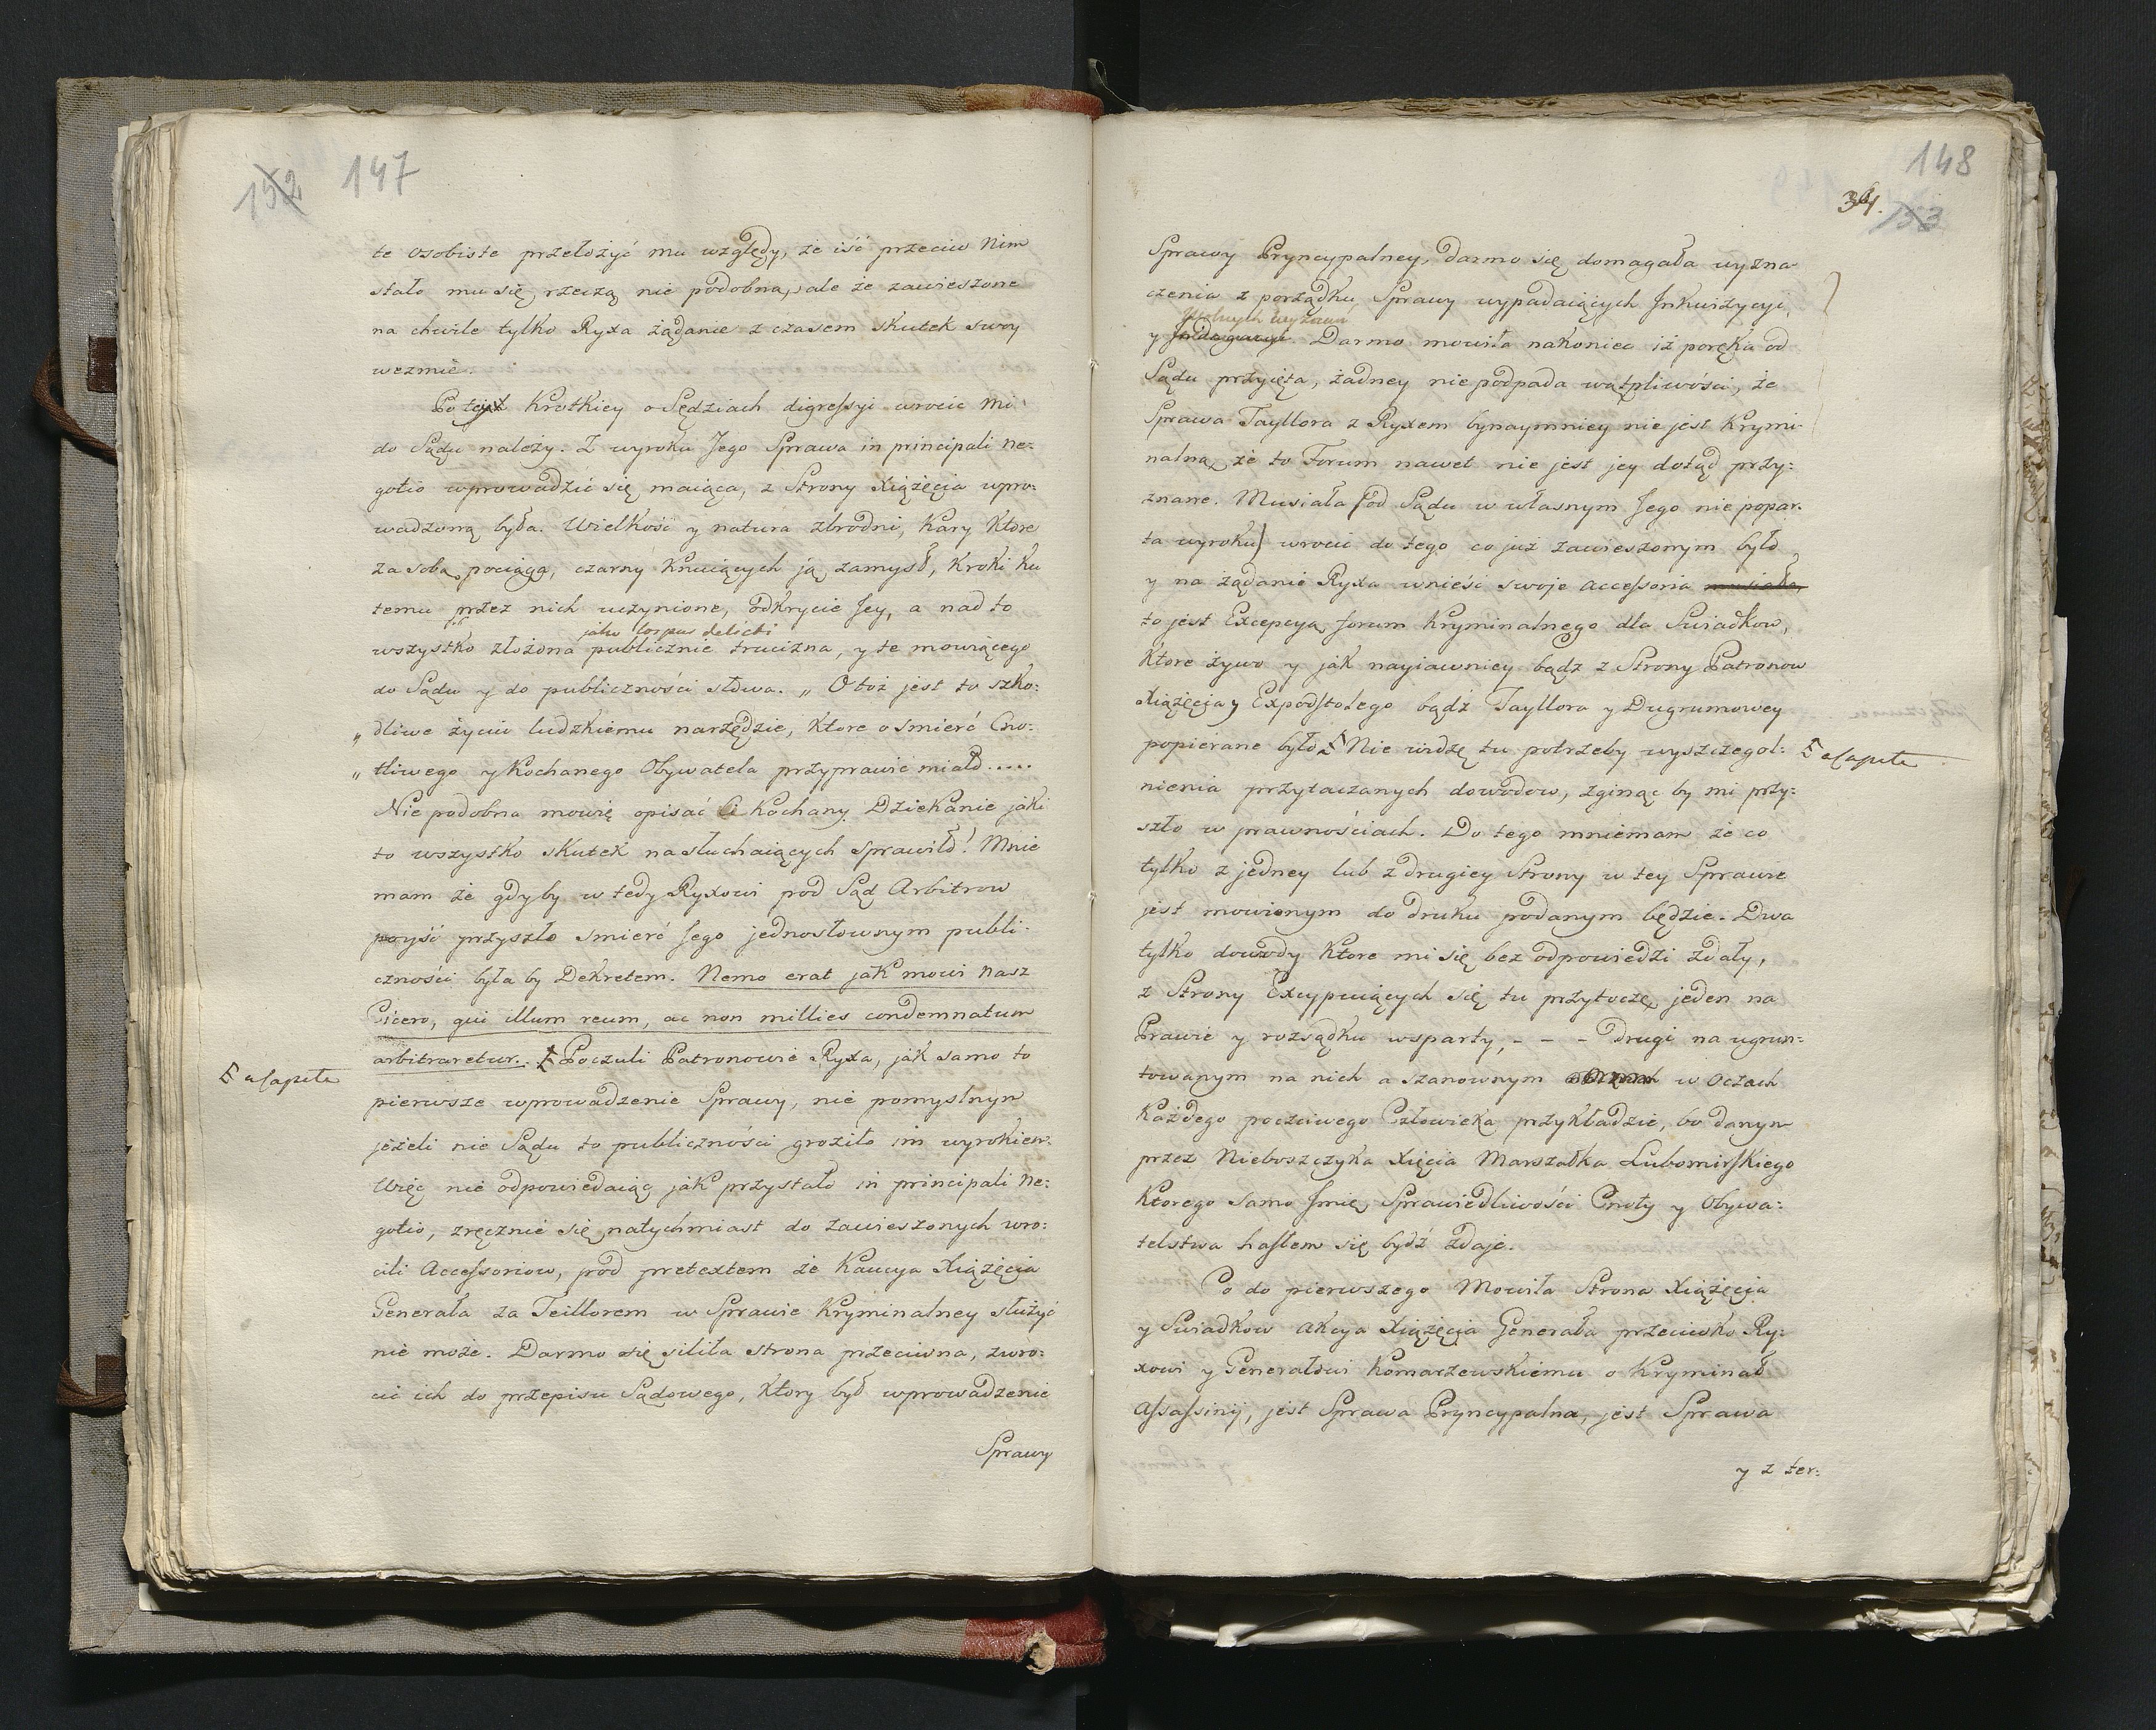 152 147
te osobiste przełożyć mu względy, że iść przeciw Nim
stało mu się rzeczą nie podobną, ale że zawieszone
na chwile tylko Ryxa żądanie z czasem skutek swoy
wezmie.
Po tey Krotkiey o Sędziach digressyi wrocic Mi
do Sądu należy. Z wyroku Jego Sprawa in principali ne=
gotio wprowadzić się maiąca, z Strony Xiążęcia wpro=
wadzoną była. Wielkość y natura zbrodni, Kary Ktore
za sobą pociąga, czarny Knuiących ją zamysł, Kroki ku
temu przez nich uczynione, odkrycie Jey, a nad to
jako Corpus delicti
wszystko złożona publicznie trucizna, y te mowiącego
do Sądu y do publiczności słowa. „ Otoż jest to szko=
„ dliwe życiu ludzkiemu narzędzie, Ktore o smierć Cno=
„ tliwego y Kochanego Obywatela przyprawić miało.....
Nie podobna mowię opisać Ci Kochany Dziekanie jaki
to wszystko skutek na słuchaiących sprawiło! Mnie
mam że gdyby w tedy Ryxowi pod Sąd Arbitrow
poyść przyszło smierć Jego jednosłownym publi=
czności była by Dekretem. Nemo erat jak mowi nasz
Cicero, qui illum reum, ac non millies condemnatum
arbitraretur. Poczuli Patronowie Ryxa, jak samo to
a Capite
pierwsze wprowadzenie Sprawy, nie pomyslnym
jeżeli nie Sądu to publiczności groziło im wyrokiem.
Więc nie odpowiedaiąc jak przystało in principali ne=
gotio, zręcznie się natychmiast do zawieszonych wro=
cili Accessoriow, pod pretextem że Kaucya Xiążęcia
Generała za Teillorem w Sprawie Kryminalney służyć
nie może. Darmo się siliła strona przeciwna, zwro=
cic ich do przepisu Sądowego, Ktory był wprowadzenie
Sprawy
148
34. 153
Sprawy Pryncypalney, darmo się domagała wyzna=
czenia z porządku Sprawy wypadaiących Inkwizycyi,
y Indagacyi. Darmo mowiła nakoniec iż poręka od
Sądu przyięta, żadney nie podpada wątpliwości, że
Sprawa Tayllora z Ryxem bynaymniey nie jest Krymi=
nalną, że to Forum nawet nie jest jey dotąd przy=
znane. Musiała od Sądu w własnym Jego nie popar=
ta wyroku wrocić do tego co już zawieszonym było
y na żądanie Ryxa wnieść swoje accessoria musiała,
to jest Excepcyą forum Kryminalnego dla Swiadkow,
Ktore żywo y jak nayiawniey bądź z Strony Patronow
Xiążęcia y Expodstolego bądź Tayllora y Dugrumowey
popierane było. Nie widzę tu potrzeby wyszczegol=
a Capite
nienia przytaczanych dowodow, zginąc by mi przy=
szło w prawnościach. Do tego mniemam że co
tylko z jedney lub z drugiey Strony w tey Sprawie
jest mowionym do druku podanym będzie. Dwa
tylko dowody Ktore mi się bez odpowiedzi zdały,
z Strony Excypuiących się tu przytoczę, jeden na
Prawie y rozsądku wsparty, - - - drugi na ugrun=
towanym na nich a szanownym w oczach
Każdego poczciwego Człowieka przykładzie, bo danym
przez Nieboszczyka Xięcia Marszałka Lubomirskiego
Ktorego samo Jmię, Sprawiedliwości Cnoty y Obywa=
telstwa hasłem się bydź zdaje.
Co do pierwszego Mowiła Strona Xiążęcia
y Swiadkow akcya Xiążęcia Generała przeciwko Ry=
xowi y Generałowi Komarzewskiemu o Kryminał
assassinij, jest Sprawa Pryncypalna, jest Sprawa
y z ter=